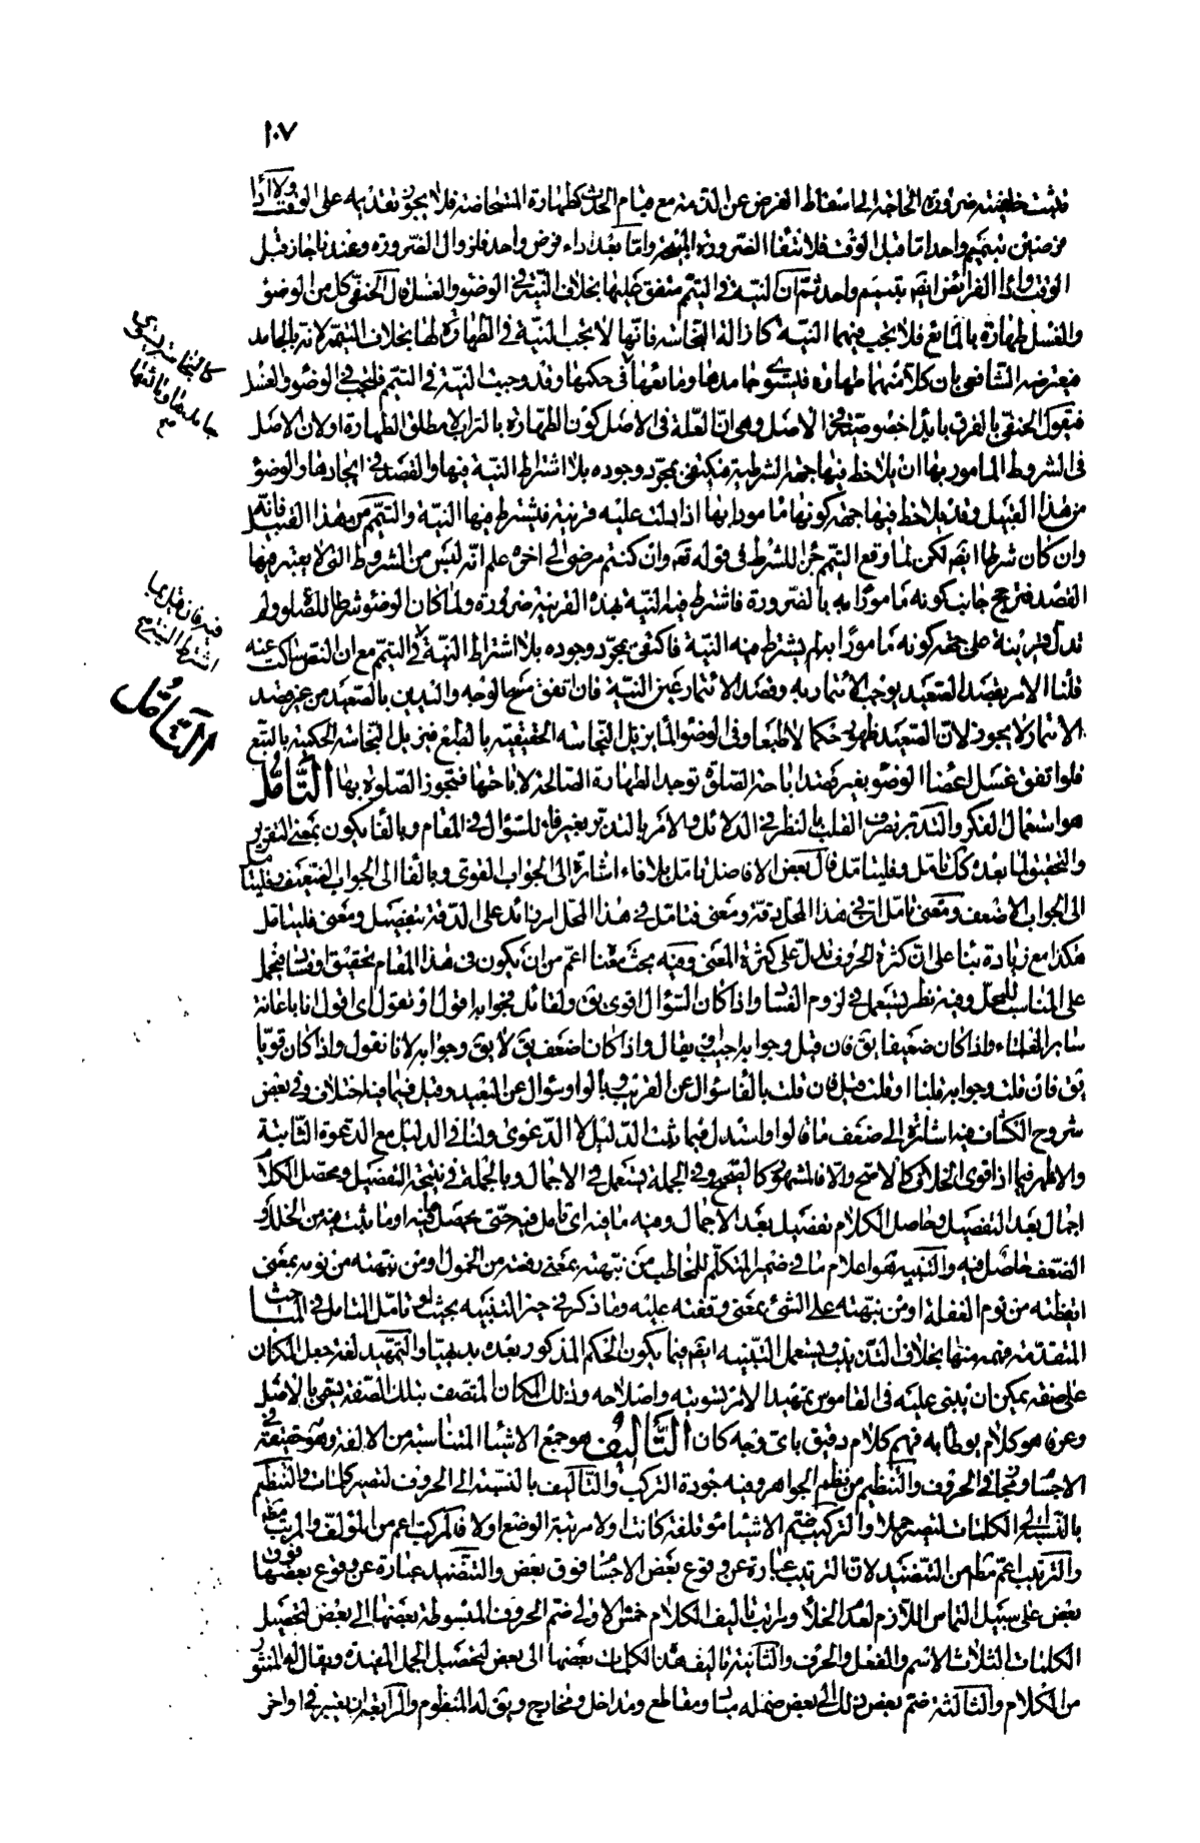 ١٠٧
فثبت خلفيته ضرورة الحاجة الى اسقاط الفرض عن الذمة مع قيام الحدث كطهارة المستحاضة فلا يجوز تقديمه على الوقت ولا اداء
فرضين بتيمم واحد اما قبل الوقت فلانتفاء الضرورة المبيحة واما بعد اداء فرض واحد فلزوال الضرورة وعندنا جاز قبل
الوقت واداء الفرائض ايضا بتيمم واحد ثم ان النية في التيمم متفق عليها بخلاف النية في الوضوء والغسل قال الحنفي كل من الوضوء
والغسل طهارة بالمائع فلا يجب فيهما النية كازالة النجاسة فانها لا يجب النية في الطهارة لها بخلاف التيمم لانه بالجامد
فيعترضه الشافعي بان كلا منهما طهارة فيستوي جامدها ومائعها في حكمها وقد وجبت النية في التيمم فلتجب في الوضوء والغسل
فيقول الحنفي بالفرق بابداء خصوصية في الاصل وهي ان العلة في الاصل كون الطهارة بالتراب لا مطلق الطهارة او لان الاصل
في الشروط المامور بها ان يلاحظ فيها جهة الشرطية فيكتفى بمجرد وجوده بلا اشتراط النية فيها والقصد في ايجادها والوضوء
من هذا القبيل وقد يلاحظ فيها جهة كونها مامورا بها اذا دلت عليه قرينة فيشترط فيها النية والتيمم من هذا القبيل فانه
وان كان شرطا ايضا لكن لما وقع التيمم جزاء للشرط في قوله تعالى وان كنتم مرضى الى اخره علم انه ليس من الشروط التي لا يعتبر فيها
القصد فترجح جانب كونه مامورا به بالضرورة فاشترط فيه النية بهذه القرينة ضرورة ولما كان الوضوء شرطا للصلوة ولم
تدل قرينة على جهة كونه مامورا به لم يشترط فيه النية فاكتفى بمجرد وجوده بلا اشتراط النية في التيمم مع ان النص ساكت عنه
قلنا الامر بقصد الصعيد يوجب الائتمار به وقصد الائتمار عين النية فان اتفق مسح الوجه واليدين بالصعيد من غير قصد
الائتمار لا يجوز لان الصعيد طهور حكما لا طبعا وفي الوضوء الماء يزيل النجاسة الحقيقية بالطبع فيزيل النجاسة الحكمية بالتبع
فلو اتفق غسل اعضاء الوضوء بغير قصد اباحة الصلوة توجد الطهارة الصالحة لاباحتها فتجوز الصلوة بها التأمل
هو استعمال الفكر والتدبر تصرف القلب بالنظر في الدلائل والامر بالتدبر بغير فاء للسؤال في المقام وبالفاء يكون بمعنى التقرير
والتحقيق لما بعده كذا تامل وفليتامل قال بعض الافاضل تامل بلا فاء اشارة الى الجواب القوي وبالفاء الى الجواب الضعيف وفليتامل
الى الجواب الاضعف ومعنى تامل ان في هذا المحل دقة ومعنى فتامل في هذا المحل امر زائد على الدقة بتفصيل ومعنى فليتامل
هكذا مع زيادة بناء على ان كثرة الحروف تدل على كثرة المعنى وفيه بحث معناه اعم من ان يكون في هذا المقام تحقيق او فساد فيحمل
على المناسب للمحل وفيه نظر يستعمل في لزوم الفساد واذا كان السؤال اقوى يقال ولقائل فجوابه اقول او نقول اي اقول انا باعانة
سائر العلماء واذا كان ضعيفا يقال فان قيل وجوابه اجيب او يقال واذا كان اضعف يقال لا يقال وجوابه لانا نقول واذا كان قويا
يقال فان قلت وجوابه قلنا او قلت وقيل فان قلت بالفاء سؤال عن القريب وبالواو سؤال عن البعيد وقيل فيما فيه اختلاف وفي بعض
شروح الكشاف فيه اشارة الى ضعف ما قالوا واستدل فيما يثبت الدليل لا الدعوى ولنا في الدليل مع الدعوة الثابتة
والاظهر فيما اذا قوى الخلاف كالاصح والا فالمشهور كالصحيح وفي الجملة يستعمل في الاجمال وبالجملة في نتيجة التفصيل ومحصل الكلام
اجمال بعد التفصيل وحاصل الكلام تفصيل بعد الاجمال وفيه ما فيه اي تامل فيه حتى يحصل ما فيه او ما يثبت فيه من الخلل و
الضعف حاصل فيه والتنبيه هو اعلام ما في ضمير المتكلم للمخاطب من نبهته بمعنى رفعته من الخمول او من نبهته من نومه بمعنى
ايقظته من نوم الغفلة او من نبهته على الشئ بمعنى وقفته عليه وما ذكر في حيز التنبيه بحيث لو تامل المتامل في المباحث
المتقدمة فهمه منها بخلاف التذنيب ويستعمل التنبيه ايضا فيما يكون الحكم المذكور بعده بديهيا والتمهيد لغة جعل المكان
على صفة يمكن ان يبنى عليه في القاموس تمهيد الامر تسويته واصلاحه وذلك المكان المتصف بتلك الصفة يسمى بالاصل
وعرفا هو كلام يوطأ به فهم كلام دقيق باي وجه كان التأليف هو جمع الاشياء المتناسبة من الالفة وهو حقيقة في
الاجسام ومجاز في الحروف والتنظيم من نظم الجواهر وفيه جودة التركيب والتاليف بالنسبة الى الحروف لتصير كلمات والتنظيم
بالنسبة الى الكلمات لتصير جملا والتركيب ضم الاشياء مؤتلفة كانت او لا مرتبة الوضع او لا فالمركب اعم من المؤلف والمرتب مطلقا
والترتيب اعم مطلقا من التنضيد لان الترتيب عبارة عن وقوع بعض الاجسام فوق بعض والتنضيد عبارة عن وقوع بعضها فوق
بعض على سبيل التماس اللازم لعدم الخلاء ومراتب تاليف الكلام خمس الاولى ضم الحروف المبسوطة بعضها الى بعض لتحصيل
الكلمات الثلاث الاسم والفعل والحرف والثانية تاليف هذه الكلمات بعضها الى بعض لتحصيل الجمل المفيدة ويقال له المنثور
من الكلام والثالثة ضم بعض ذلك الى بعض ضما له مباد ومقاطع ومداخل ومخارج ويقال له المنظوم والرابعة ان يعتبر في اواخر
كالنجاسة يستوي
جامدها ومائعها
م
فيه فان قيل بما
اشترط النية
التأمل